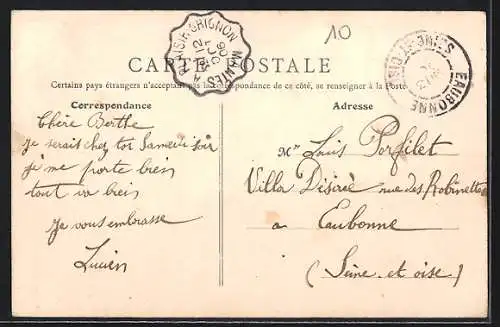 10
CARTE POSTALE
PLAISIR-GRIGNON
MANTES A
12
OCT
06
SEINE-ET-OISE
EAUBONNE
Certains pays étrangers n'acceptant pas la correspondance de ce côté, se renseigner à la Poste
Correspondance
Chère Berthe
Je serais chez toi Samedi soir
je me porte bien
tout va bien
Je vous embrasse
Lucien
Adresse
Mr Louis Porfilet
Villa Désirée rue des Robinettes
a Eaubonne
(Seine et oise)